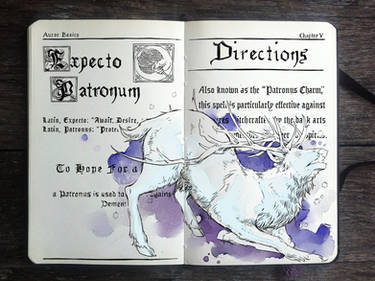 Auror Basics
Expecto
Patronum
Latin, Expecto: "Await, Desire,
Latin, Patronus: "Prote
To Hope For a
a Patronus is used to
Demen
Chapter V
Directions
Also known as the "Patronus Charm,"
this spell is particularly effective against
arts